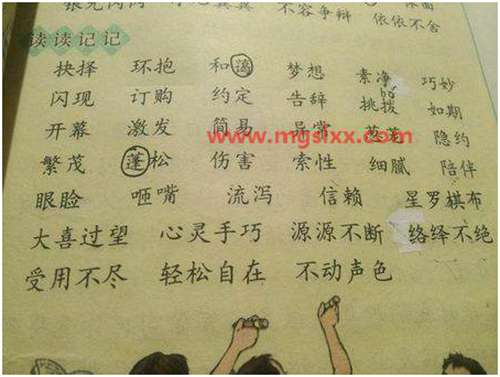 不容争辩
依依不舍
读读记记
抉择 环抱 和谐 梦想 素净 巧妙
闪现 订购 约定 告辞 挑拨 如期
bō
开幕 激发 简易 异常 隐约
www.mgslxx.com
繁茂 蓬松 伤害 索性 细腻 陪伴
眼睑 咂嘴 流泻 信赖 星罗棋布
大喜过望 心灵手巧 源源不断 络绎不绝
受用不尽 轻松自在 不动声色